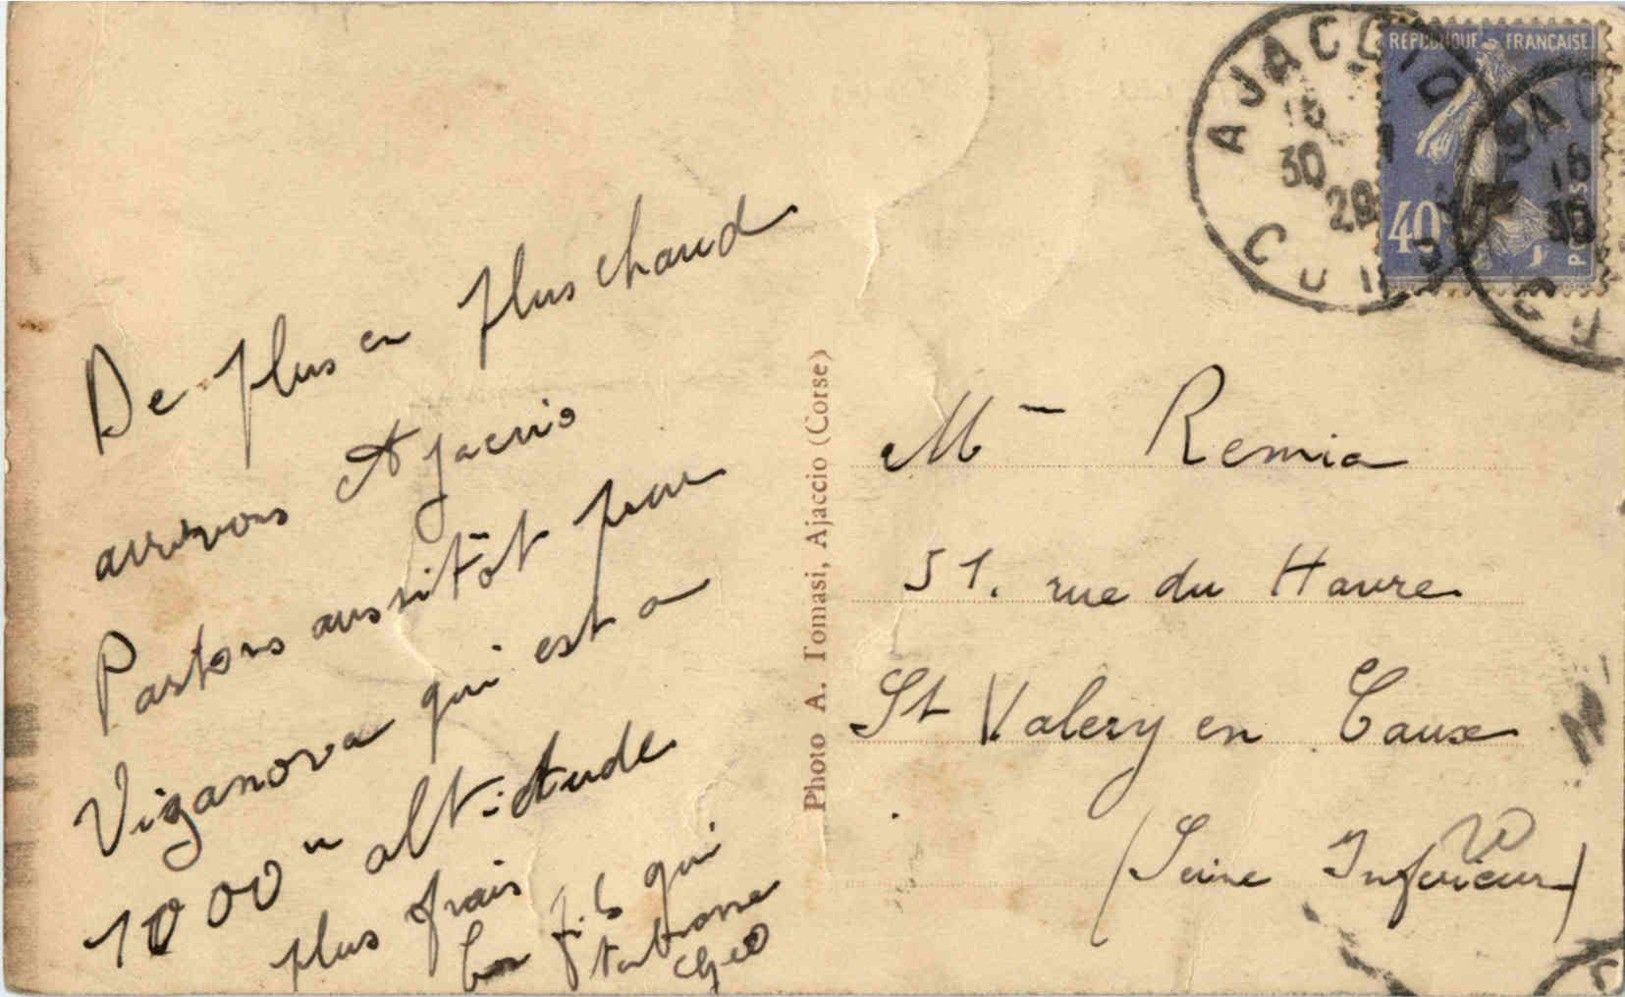 De plus en plus chaud
arrivons Ajaccio
Partons aussitôt pour
Vizanova qui est a
1000 m altitude
plus frais
ton fils qui
t'embrasse
Géo
Photo A. Tomasi, Ajaccio (Corse)
REPUBLIQUE FRANCAISE
40
POSTES
AJACCIO
16
30
29
CORSE
16
30
Mme Remia
51. rue du Havre
St Valery en Caux
(Seine Inferieure)